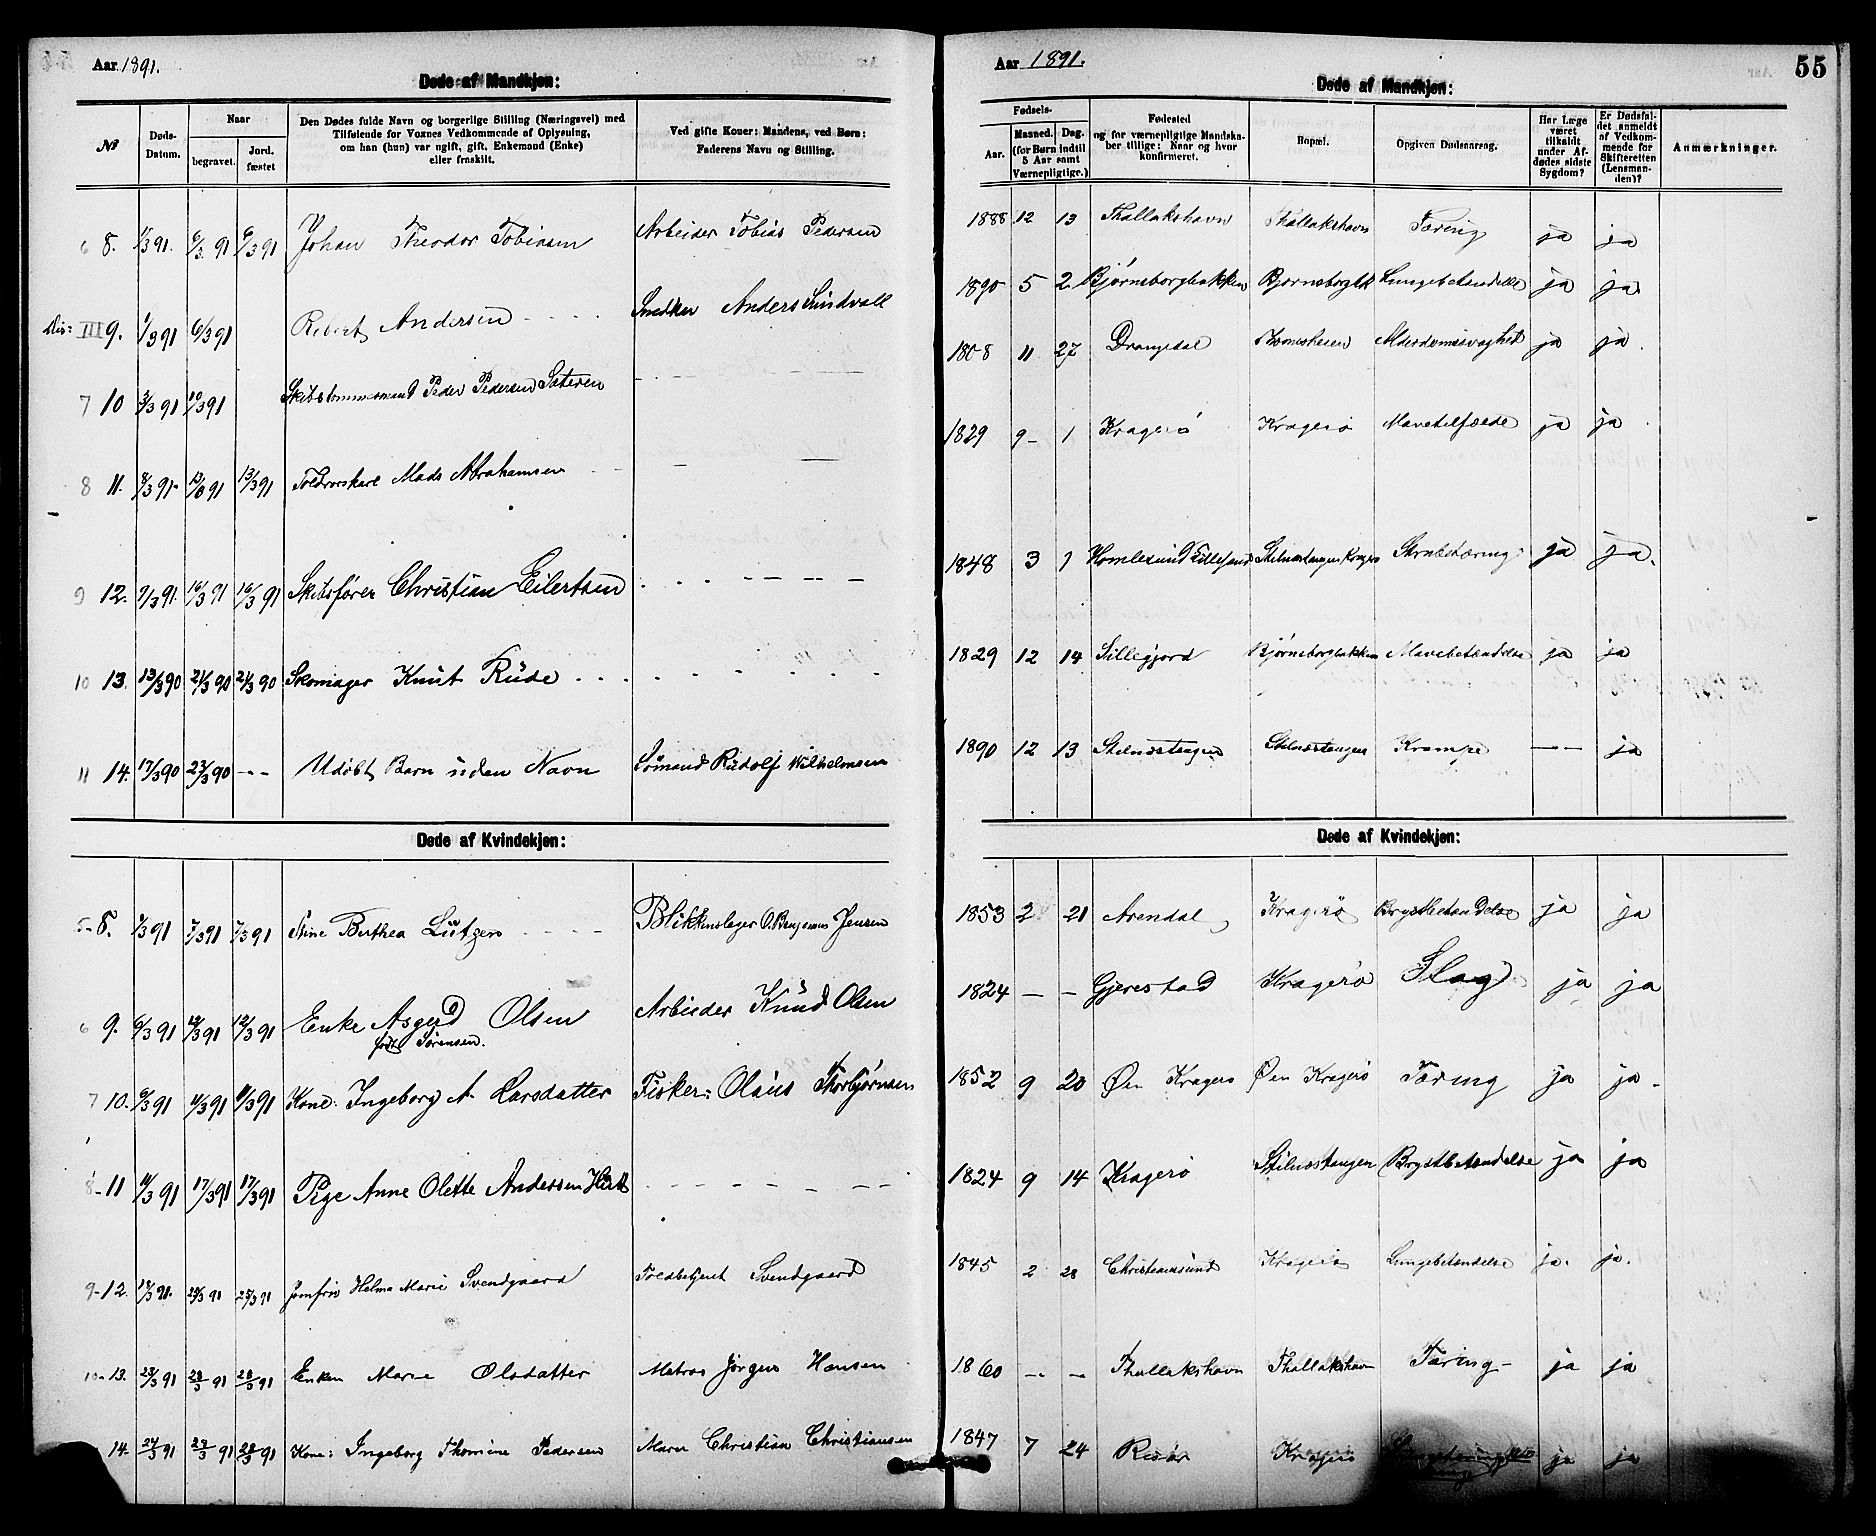 Aar 1891.
Døde af Mandkjøn:
№
Døds-Datum.
Naar
begravet.
Jord. fæstet
Den Dødes fulde Navn og borgerlige Stilling (Næringsvei) med
Tilføiende for Voxnes Vedkommende af Oplysning,
om han (hun) var ugift, gift, Enkemand (Enke)
eller fraskilt.
Ved gifte Koner: Mandens, ved Børn:
Faderens Navn og Stilling.
6 8. 1/3 91. 6/3 91 6/3 91 Johan Theodor Tobiasen Arbeider Tobias Pedersen
Dis: III 9. 1/3 91 6/3 91 Robert Andersen - - - - Snedker Anders Sundvall
7 10 3/3 91 10/3 91 Skibstømmermand Peder Pedersen Sateren
8 11. 8/3 91 13/3 91 13/3 91 Toldrorskarl Mads Abrahamsen
9 12. 9/3 91. 16/3 91 16/3 91 Skibsfører Christian Eilertsen
10 13. 13/3 90 21/3 90 21/3 90 Skomager Knut Rude
11 14. 17/3 90 23/3 90 - - Udøbt Barn uden Navn Sømand Rudolf Wilhelmsen
Døde af Kvindekjøn:
5 8. 1/3 91 7/3 91 7/3 91 Stine Berthea Lützen Blikkenslager O. Benjamin Jensen
6 9. 6/3 91 12/3 91 12/3 91 Enke Asgerd Olsen Arbieder Knud Olsen
født Sørensen.
7 10. 6/3 91 11/3 91 11/3 91 Kone. Ingeborg A. Larsdatter Fisker: Olaus Thorbjørnsen
8 11 10/3 91 17/3 91 17/3 91 Pige Anne Olette Andersen Hirth
9 12. 17/3 91. 25/3 91 25/3 91 Jomfru Helma Marie Svendgaard Toldbetjent Svendgaard
10 13. 23/3 91 28/3 91 28/3 91 Enken Marie Olsdatter Matros Jørgen Hansen
14. 24/3 91 29/3 91 28/3 91 Kone: Ingeborg Thomine Pedersen Murer Christian Christiansen
Aar 1891.
55
Døde af Mandkjøn:
Fødsels-
Aar.
Maaned. Dag.
(for Børn indtil
5 Aar samt
Værnepligtige.)
Fødested
og for værnepligtige Mandska-
ber tillige: Naar og hvor
konfirmeret.
Bopæl.
Opgiven Dødsaarsag.
Har Læge
været
tilkaldt
under Af-
dødes sidste
Sygdom?
Er Dødsfal-
det anmeldt
af Vedkom-
mende for
Skifteretten
(Lensman-
den)?
Anmærkninger.
1888 12 13 Thallakshavn Thallakshavn Tæring ja ja
1890 5 2 Bjørnsborgbakken Bjørnsborgbk Lungebetændelse ja ja.
1808 11 27 Drangedal Alderdomssvaghed ja ja.
1829 9 - 1 Kragerö Kragerö Mavetilfælde ja ja.
1848 3 1 Homlesund Lillesand Stilnæstangen Kragerø Strubetæring ja ja.
1829 12 14 Sillegjord Bjørnsborgbakken Mavebetændelse ja ja
1890 12 13 Stilnæstangen Stilnæstangen Krampe - - ja
Døde af Kvindekjøn:
1853 2 21 Arendal Kragerö Brystbetændelse ja ja
1824 - - Gjerestad Kragerö Slag ja ja
1852 9 20 Øen Kragerö Øen Kragerö Tæring ja ja -
1824 9 14 Kragerö Stilnæstangen Brystbetændelse ja ja
1845 2 28 Christiansund Kragerö Lungebetændelse ja. ja.
1860 - - Thallakshavn Thallakshavn Tæring - ja ja
1847 7 24 Risør Kragerö ja ja